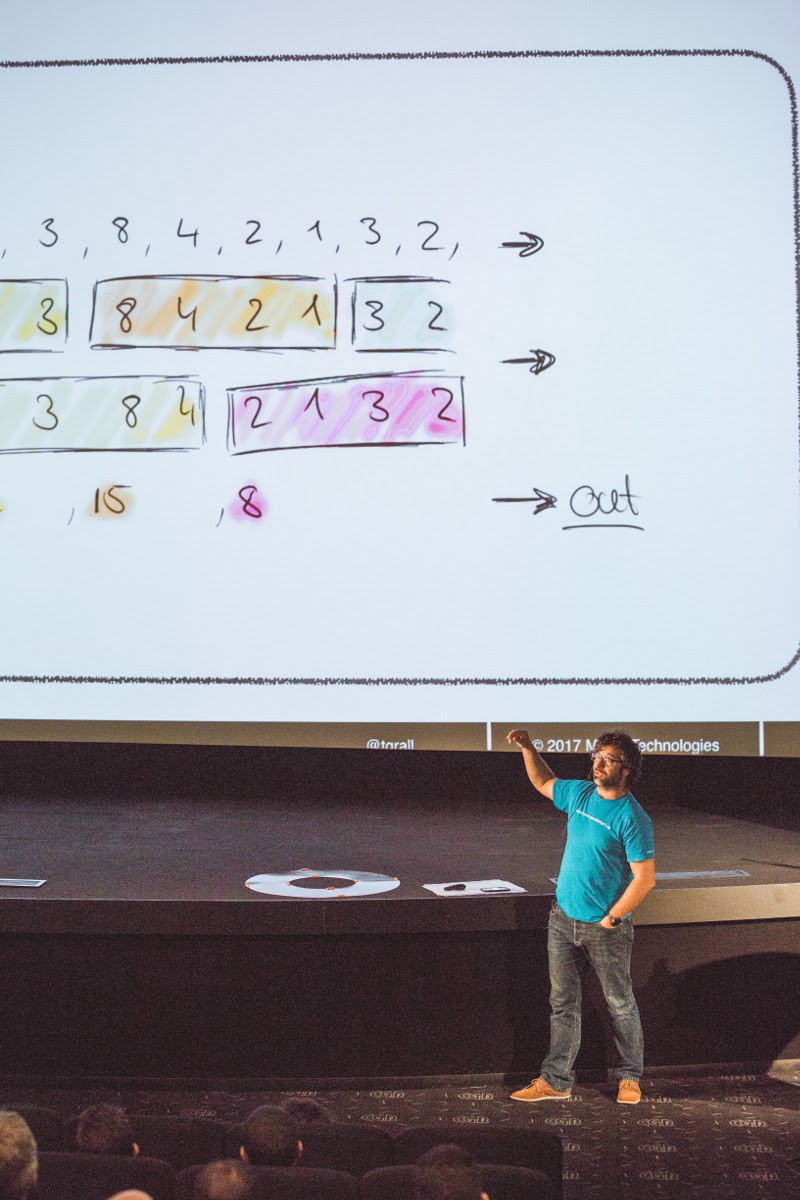 , 3 , 8 , 4 , 2 , 1 , 3 , 2 ,
3 8 4 2 1 3 2
3 8 4 2 1 3 2
, 15 , 8 out
@tgrall © 2017 Technologies